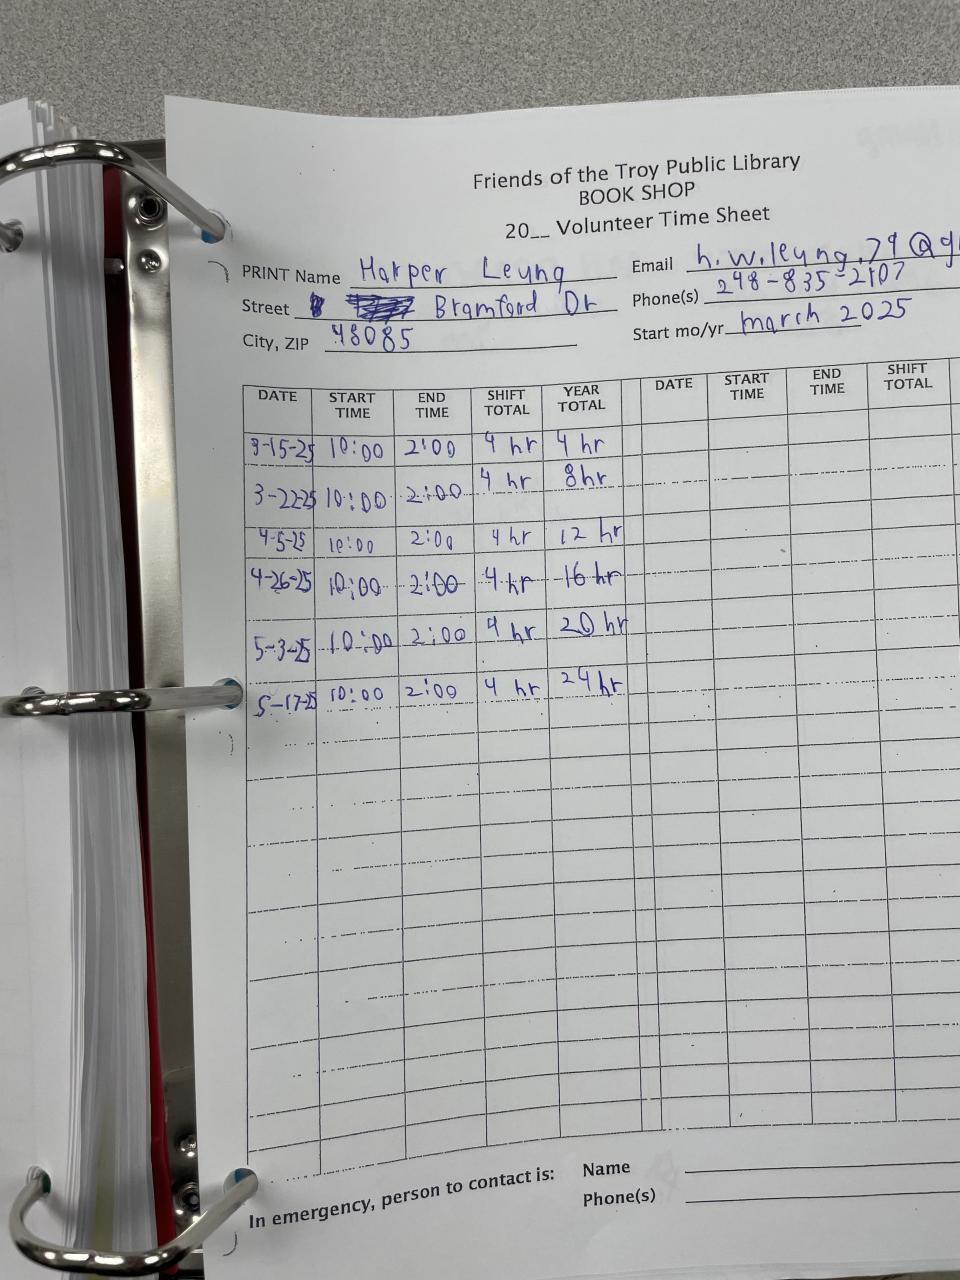 Friends of the Troy Public Library
BOOK SHOP
20__ Volunteer Time Sheet
PRINT Name Harper Leung Email h.w.leung.79@g
Street Bramford Dr Phone(s) 248-835-2107
City, ZIP 48085 Start mo/yr march 2025
DATE START TIME END TIME SHIFT TOTAL YEAR TOTAL DATE START TIME END TIME SHIFT TOTAL
3-15-25 10:00 2:00 4 hr 4 hr
3-22-25 10:00 2:00 4 hr 8hr
4-5-25 10:00 2:00 4 hr 12 hr
4-26-25 10:00 2:00 4 hr 16 hr
5-3-25 10:00 2:00 4 hr 20 hr
5-17-25 10:00 2:00 4 hr 24 hr
In emergency, person to contact is: Name
Phone(s)